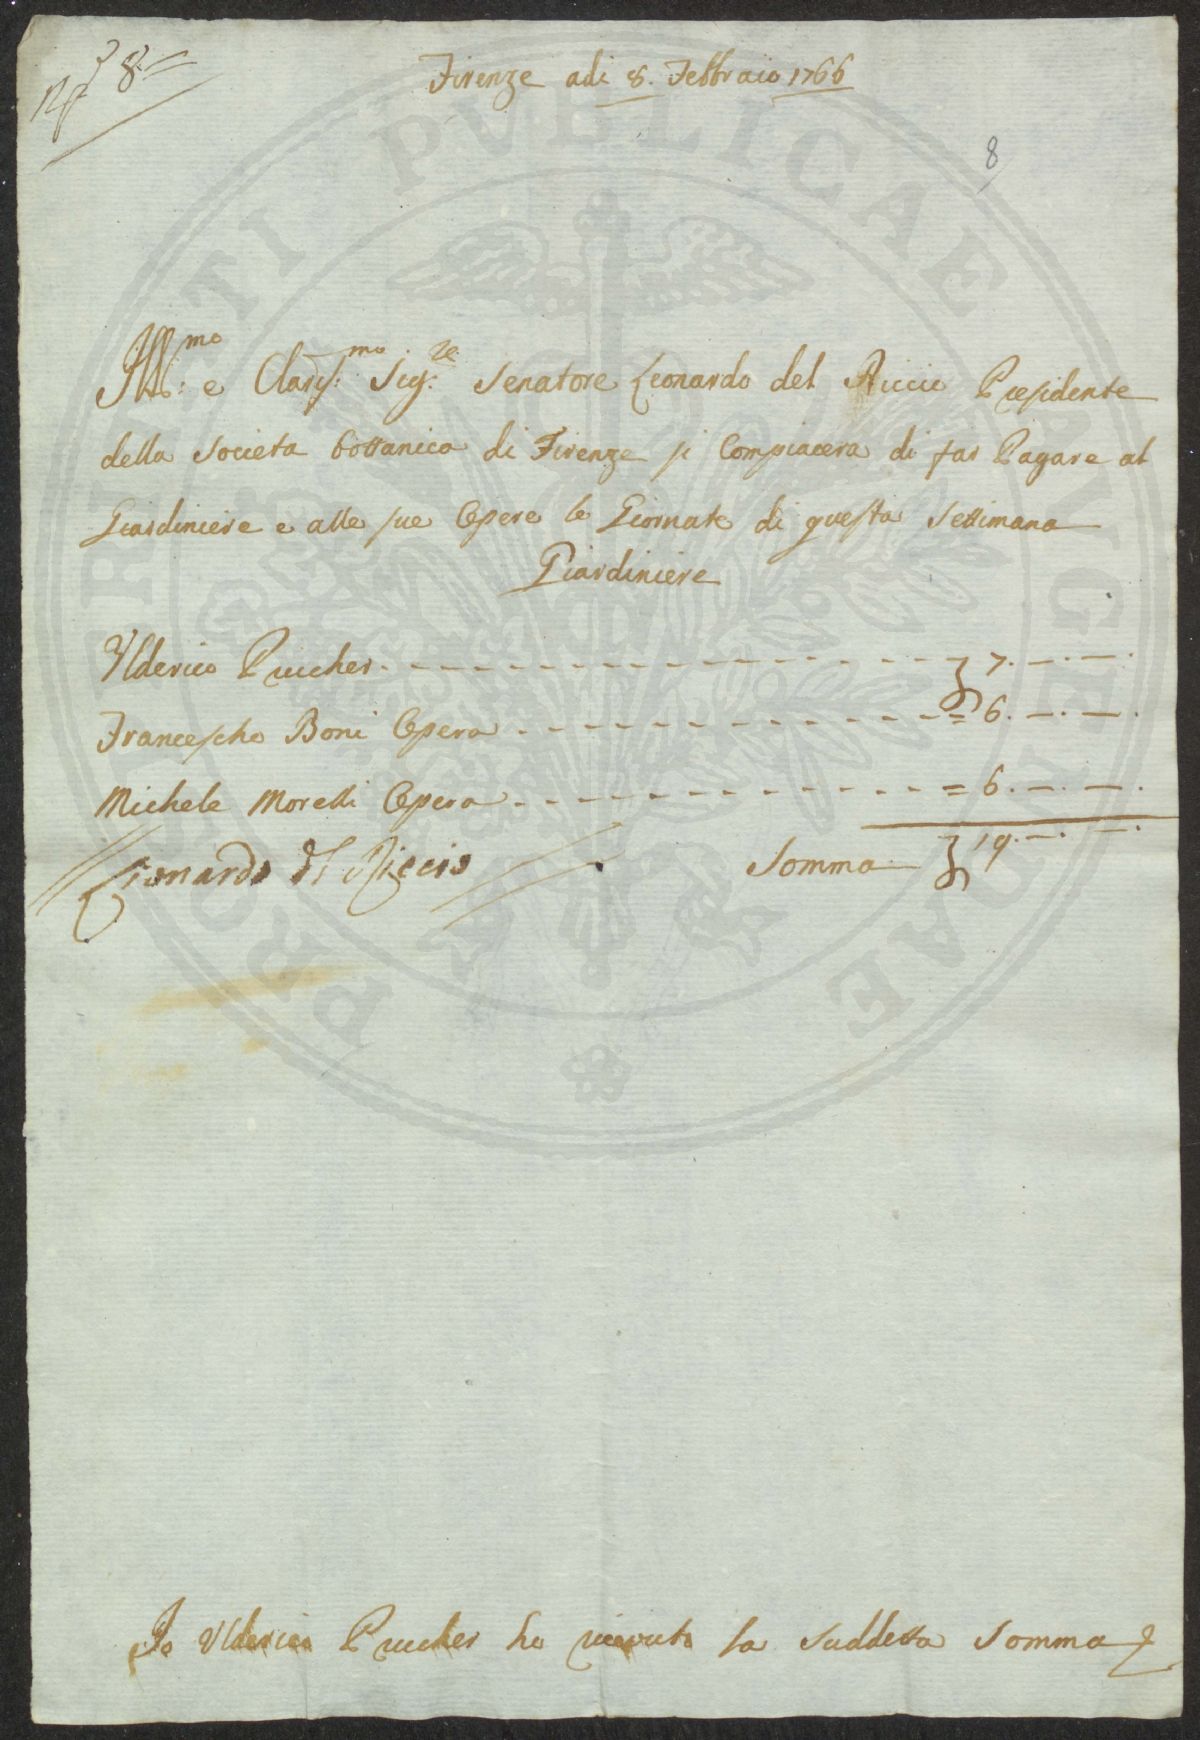 8
Firenze adi 8. Febbraio 1766
8
Ill:mo e Clariss:mo Sig:re Senatore Leonardo del Riccio Presidente
della Societa bottanica di Firenze si Compiacera di far Pagare al
Giardiniere e alle sue Opere le Giornate di questa Settimana
Giardiniere
Ulderico Pruchер - - - 7. —. —.
Francescho Boni Opera - - - = 6. —. —.
Michele Morelli Opera - - - = 6. —. —.
Leonardo del Riccio Somma 19. —. —.
Io Ulderico Prucher ho ricevuto la suddetta Somma
PROSPERITATI PUBLICAE AUGENDAE